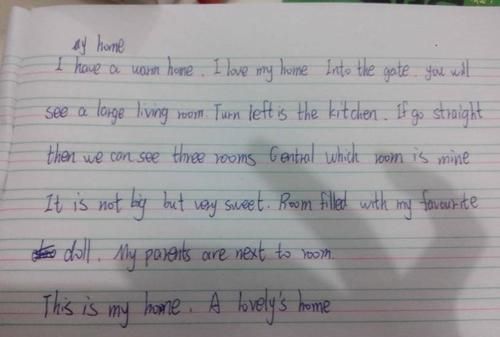 My home
I have a warm home. I love my home Into the gate. you will
see a large living room. Turn left is the kitchen. If go straight
then we can see three rooms Central which room is mine
It is not big but very sweet. Room filled with my favourite
doll. My parents are next to room.
This is my home. A lovely's home